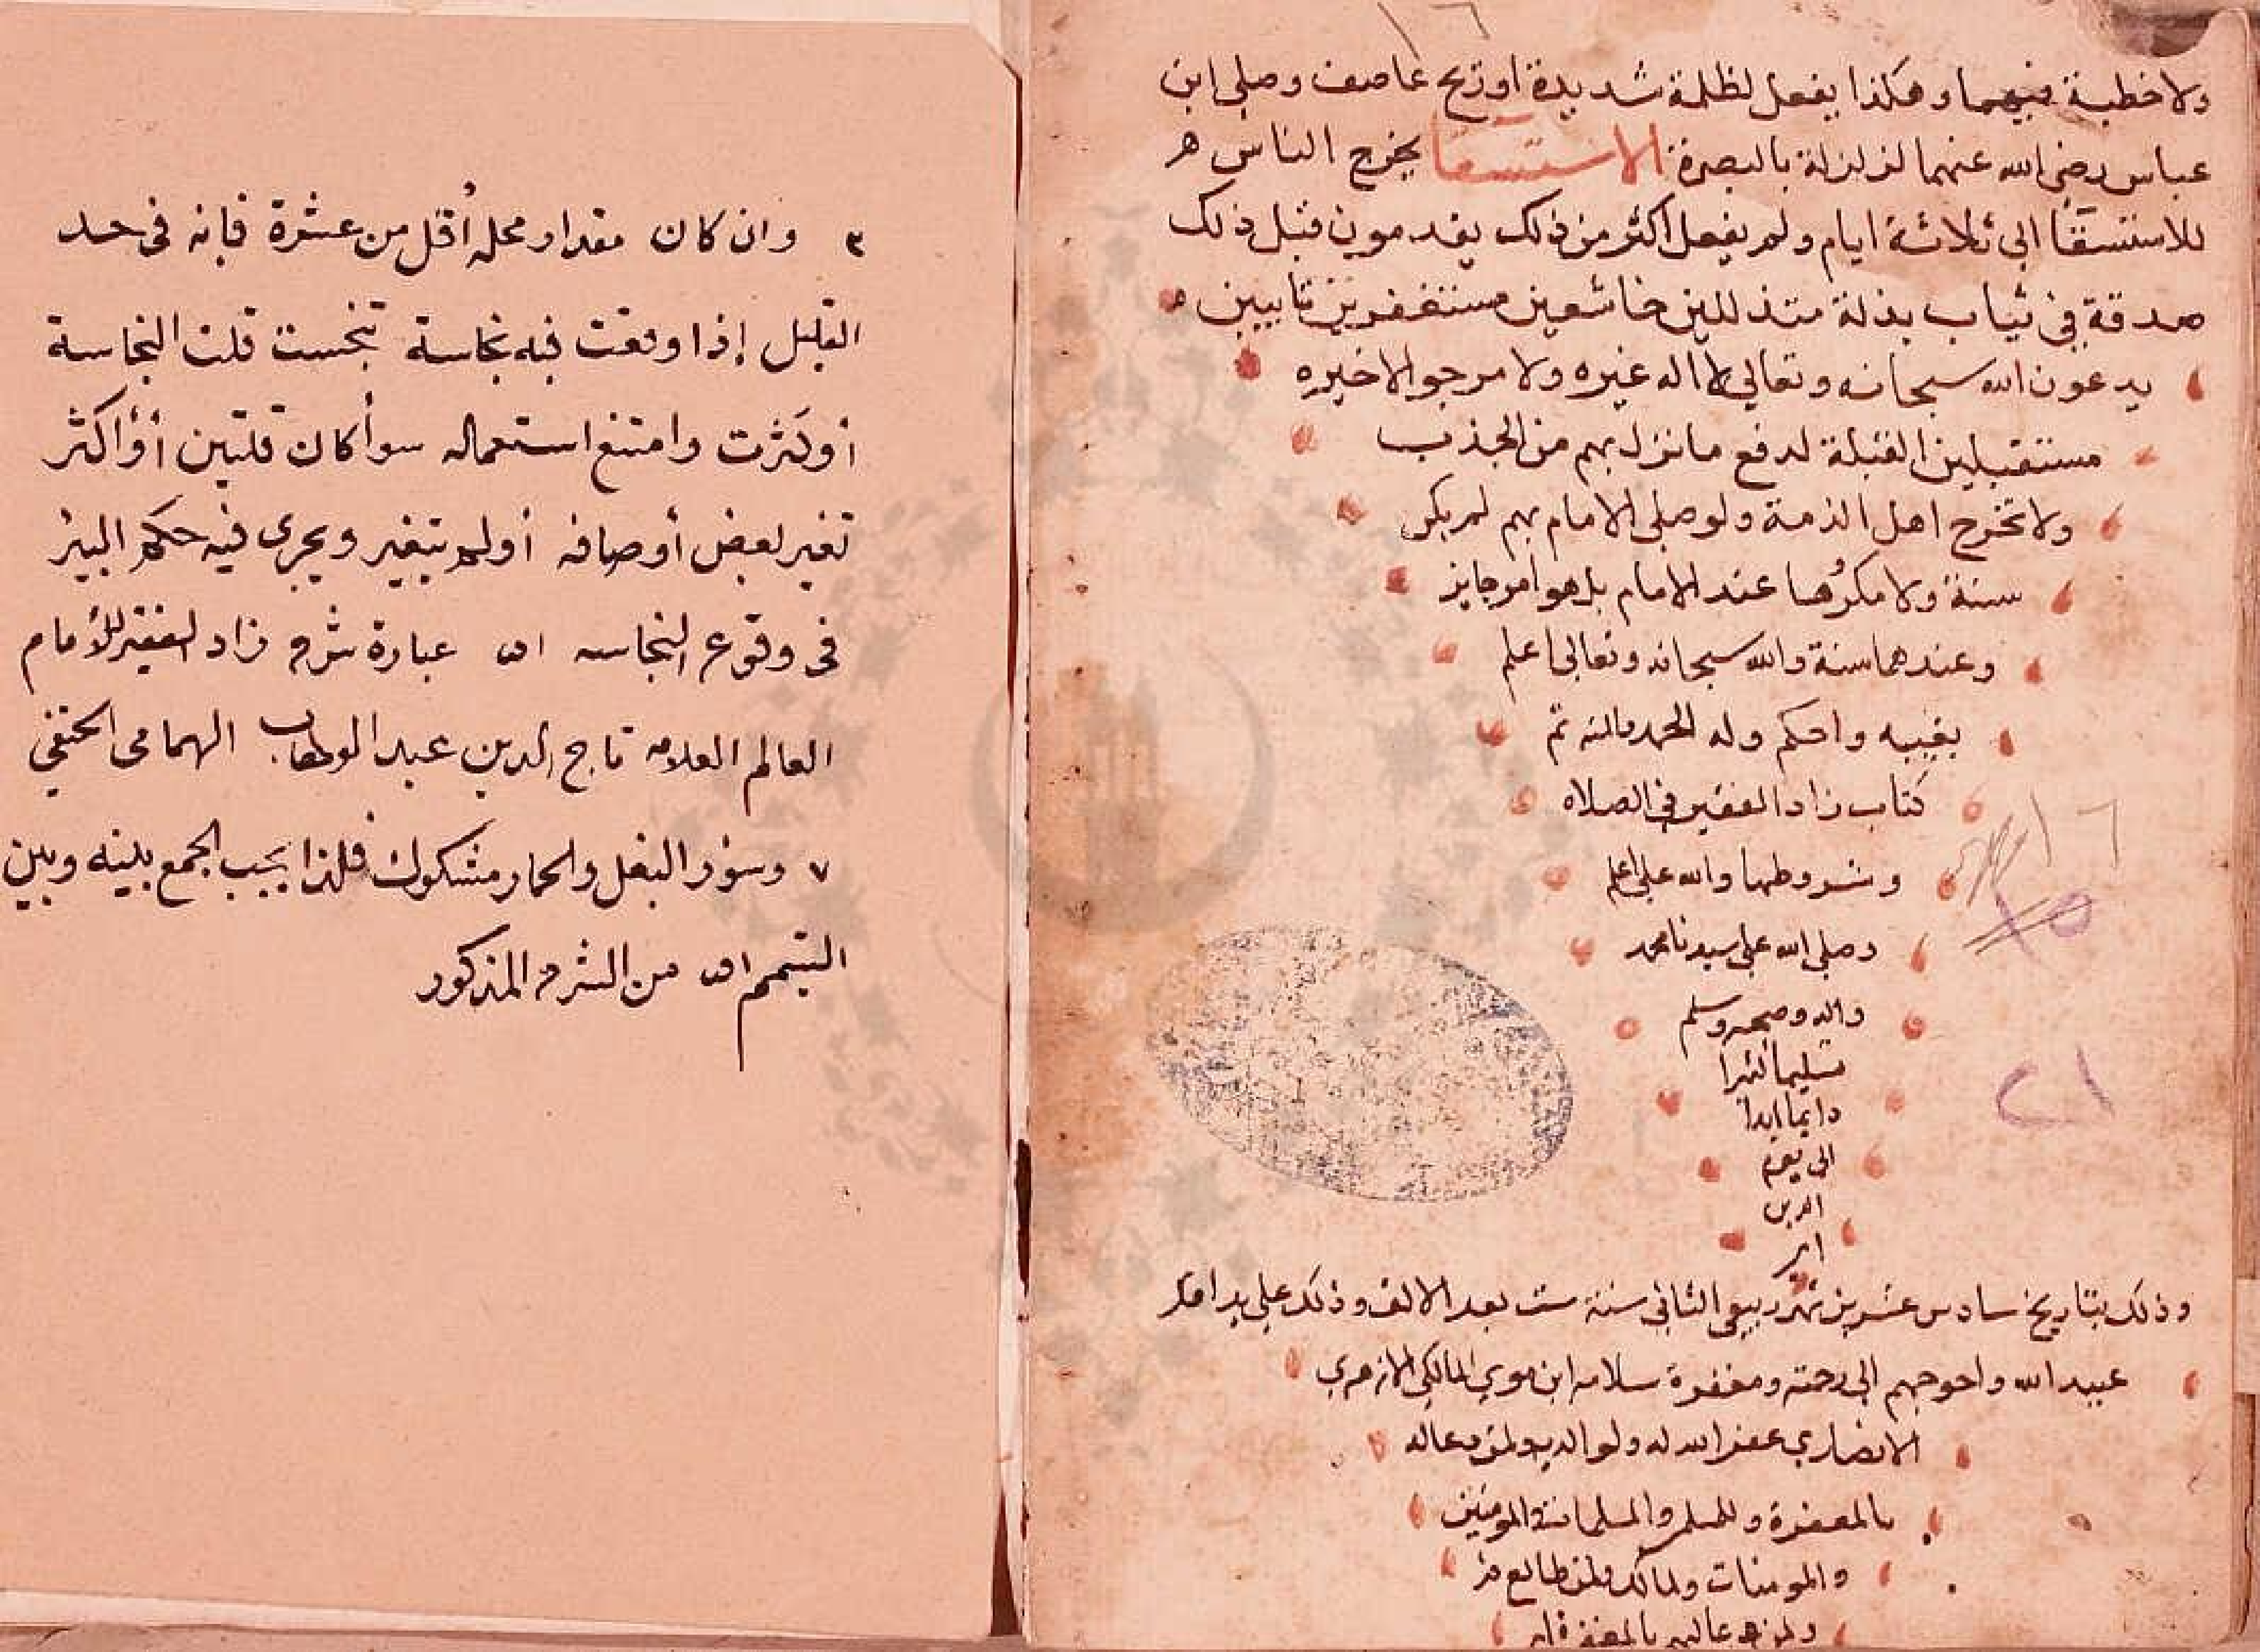 ١٦
ولا خطبة فيهما وهكذا يفعل لظلمة شديدة اوريح عاصف وصلى ابن
عباس رضي الله عنهما لزلزلة بالبصرة الاستسقا يخرج الناس
للاستسقا الى ثلاثة ايام ولم يفعل اكثر من ذلك يقدمون قبل ذلك
صدقة في ثياب بذلة متذللين خاشعين مستغفرين تايبين
يدعون الله سبحانه وتعالى لا اله غيره ولا مرجو الا خيره
مستقبلين القبلة لدفع ما نزل بهم من الجذب
ولا تخرج اهل الذمة ولو صلى الامام بهم لم يكن
سنة ولا مكرُوها عند الامام بل هو امر جايز
وعندهما سنة والله سبحانه وتعالى اعلم
بغيبه واحكم وله الحمد والمنه تم
كتاب زاد الفقير في الصلاه
وشروطها والله اعلم
وصلى الله على سيدنا محمد
واله وصحبه وسلم
تسليما كثيرا
دايما ابدا
الى يوم
الدين
١٦
١٥
٢١
وذلك بتاريخ سادس عشرين شهر ربيع الثاني سنة ست بعد الالف وذلك على يد افقر
عبيد الله واحوجهم الى رحمته ومغفرة سلامه ابن موسي المالكي الازهري
الانصاري غفر الله له ولوالديه ولمن دعا له
بالمغفرة وللمسلمين والمسلمات والمومنين
والمومنات ولمالكه ولمن طالع فيه
ولمن دعا لهم بالمغفرة
٣ وان كان مقدار محله أقل من عشرة فإنه فى حد
القليل إذا وقعت فيه نجاسة تنجست قلت النجاسة
أو كثرت وامتنع استعماله سوأ كان قلتين أو أكثر
تغير بعض أوصافه أو لم يتغير ويجرى فيه حكم البئر
فى وقوع النجاسه اهـ عبارة شرح زاد الفقير للأمام
العالم العلامه تاج الدين عبد الوهاب الهمامى الحنفي
٧ وسؤر البغل والحمار مشكوك فلهذا يجب الجمع بينه وبين
التيمم اهـ من الشرح المذكور